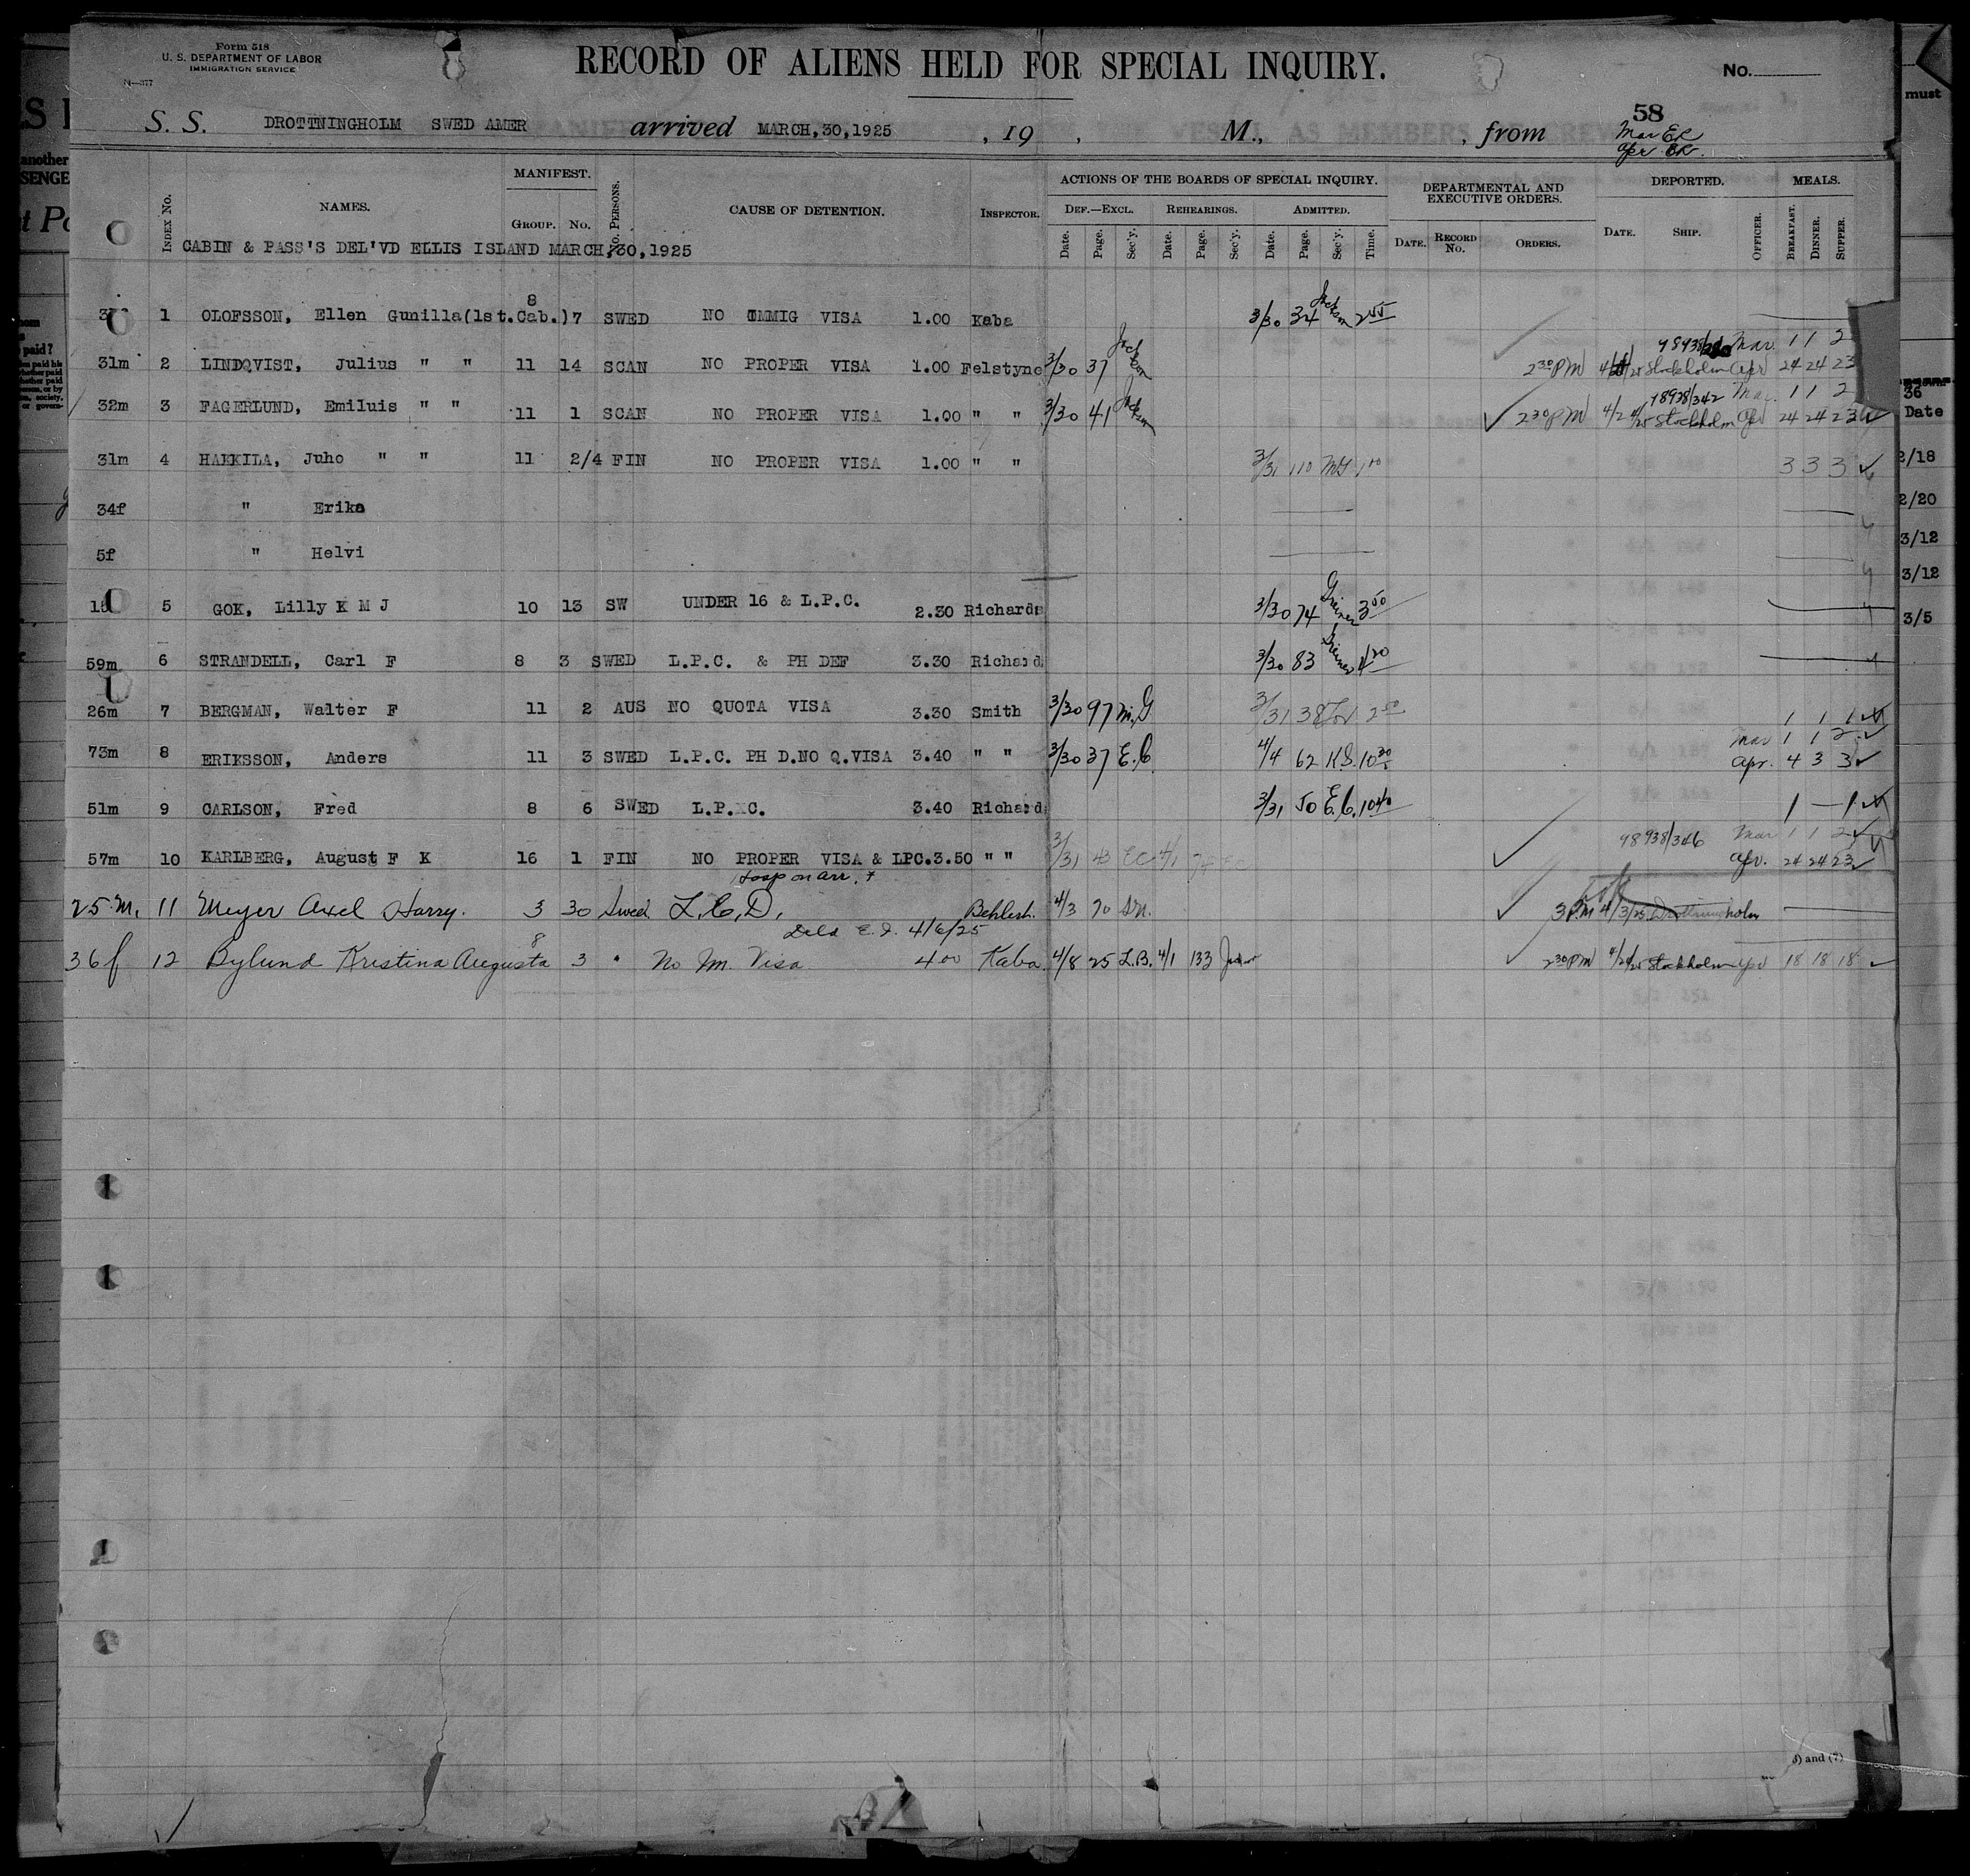 Form 518
U. S. DEPARTMENT OF LABOR
IMMIGRATION SERVICE
N—377
RECORD OF ALIENS HELD FOR SPECIAL INQUIRY.
No.
58
S. S. DROTTNINGHOLM SWED AMER arrived MARCH,30,1925 , 19 , M., , from
INDEX No. NAMES. MANIFEST. GROUP. No. No. PERSONS. CAUSE OF DETENTION. INSPECTOR. ACTIONS OF THE BOARDS OF SPECIAL INQUIRY. DEF.—EXCL. REHEARINGS. ADMITTED. DEPARTMENTAL AND EXECUTIVE ORDERS. DEPORTED. MEALS.
Date. Page. Sec'y. Date. Page. Sec'y. Date. Page. Sec'y. Time. DATE. RECORD No. ORDERS. DATE. SHIP. OFFICER. BREAKFAST. DINNER. SUPPER.
CABIN & PASS'S DEL'VD ELLIS ISLAND MARCH,30,1925
1 OLOFSSON, Ellen Gunilla(1st.Cab.) 8 7 SWED NO IMMIG VISA 1.00 Kaba 3/30 34 Jackson 2 55
31m 2 LINDQVIST, Julius " " 11 14 SCAN NO PROPER VISA 1.00 Felstyne 3/30 37 Jackson Mar. 1 1 2
2 30 PM Stockholm Apr 24 24 23
32m 3 FAGERLUND, Emiluis " " 11 1 SCAN NO PROPER VISA 1.00 " " 3/30 41 Jackson 98938/342 Mar. 1 1 2
2 30 PM Stockholm Apr 24 24 23
31m 4 HAKKILA, Juho " " 11 2/4 FIN NO PROPER VISA 1.00 " " 3/31 110 McG 1 00 3 3 3
34f " Erika
5f " Helvi
5 GOK, Lilly K M J 10 13 SW UNDER 16 & L.P.C. 2.30 Richards 3/30 74 Greiner 3 50
59m 6 STRANDELL, Carl F 8 3 SWED L.P.C. & PH DEF 3.30 Richard 3/30 83 Greiner 4 20
26m 7 BERGMAN, Walter F 11 2 AUS NO QUOTA VISA 3.30 Smith 3/30 97 McG 3/31 38 1 1 1
73m 8 ERIKSSON, Anders 11 3 SWED L.P.C. PH D.NO Q.VISA 3.40 " " 3/30 37 E.C. 4/4 62 K.S. 10 30 Mar 1 1 2
Apr. 4 3 3
51m 9 CARLSON, Fred 8 6 SWED L.P.C. 3.40 Richard 3/31 50 E.C. 10 40 1 — 1
57m 10 KARLBERG, August F K 16 1 FIN NO PROPER VISA & LPC.3.50 " " 3/31 43 EC 4/1 98938/346 Mar 1 1 2
Hosp on arr. Apr. 24 24 23
25 m. 11 Meyer Axel Harry. 3 30 Swed. L.C.D. 4/3 70 3 P.M 4/3/25 Drottningholm
Deld E.I. 4/6/25
36 f 12 Bylund Kristina Augusta 8 3 " No Im. Visa 4 00 Kaba 4/8 25 L.B. 4/1 133 2 30 PM Stockholm Apr 18 18 18
must
another
SENGE
paid?
36
Date
2/18
2/20
3/12
3/12
3/5
) and (7)